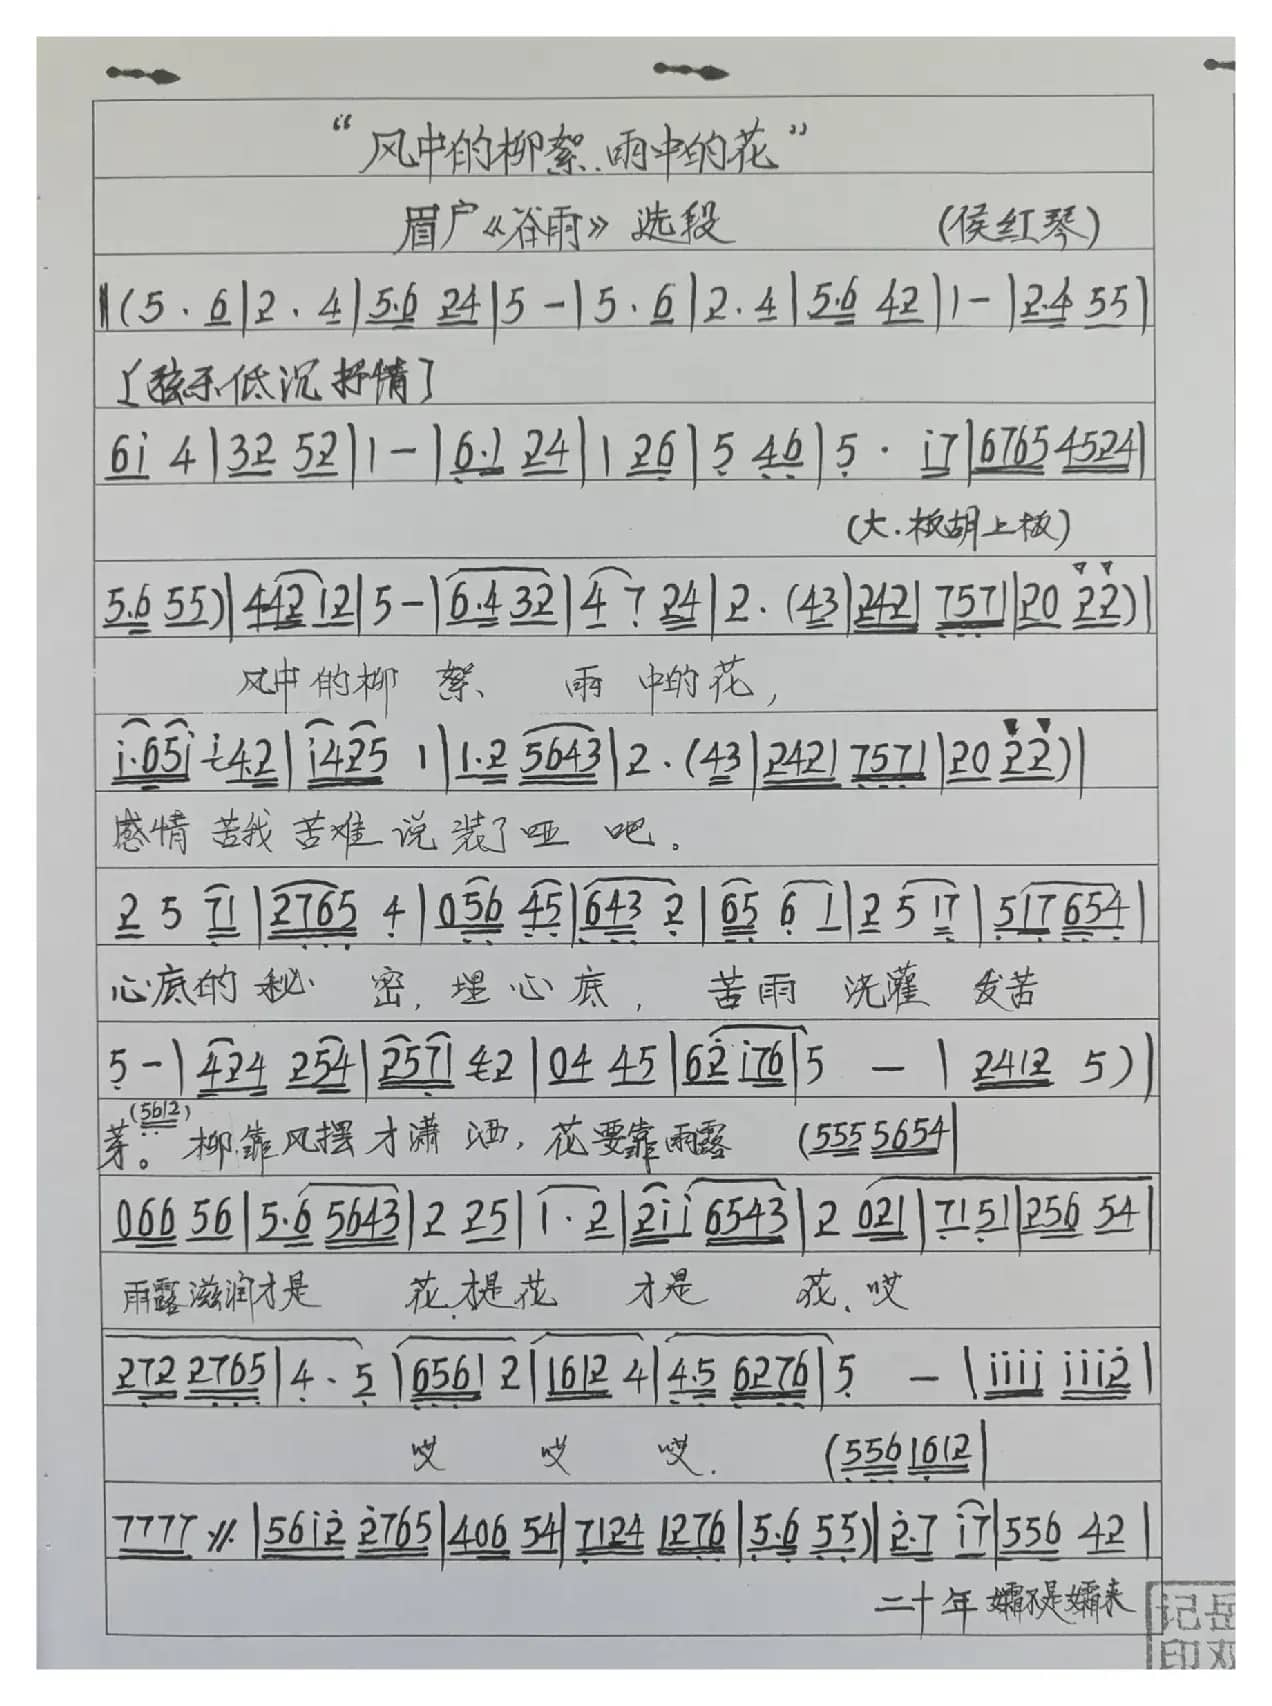 “风中的柳絮.雨中的花”
眉户《谷雨》选段 (侯红琴)
‖(5 . 6|2 . 4|5.6 24|5 -|5 . 6|2 . 4|5.6 42|1 -|2.4 55|
[弦乐低沉抒情]
6i 4|32 52|1 -|6.1 24|1 26|5 46|5 . i7|6765 4524|
(大.板胡上板)
5.6 55)|442 12|5 -|6.4 32|4 7 24|2 . (43|2421 7571|20 22)|
风中的柳 絮、 雨 中的花,
i.65i i42|i425 1|1.2 5643|2 . (43|2421 7571|20 22)|
感情苦我苦难说装了哑 吧。
2 5 71|2765 4|056 45|643 2|65 6 1|2 5 17|517 654|
心底的秘 密, 埋心底, 苦雨 浇灌 发苦
5 -|424 254|2571 42|04 45|62 i76|5 — |2412 5)|
(5612)
芽。柳靠风摆才潇洒, 花要靠雨露 (555 5654|
066 56|5.6 5643|2 25|1 . 2|2ii 6543|2 021|7151|256 54|
雨露滋润才是 花.才是花 才是 花、哎
272 2765|4 . 5|6561 2|1612 4|4.5 6276|5 — |iiii iii2|
哎 哎 哎. (556 1612|
7777 ⁒|56i2 2765|406 54|7124 1276|5.6 55)|2.7 i7|556 42|
二十年孀不是孀来
记岳
印双